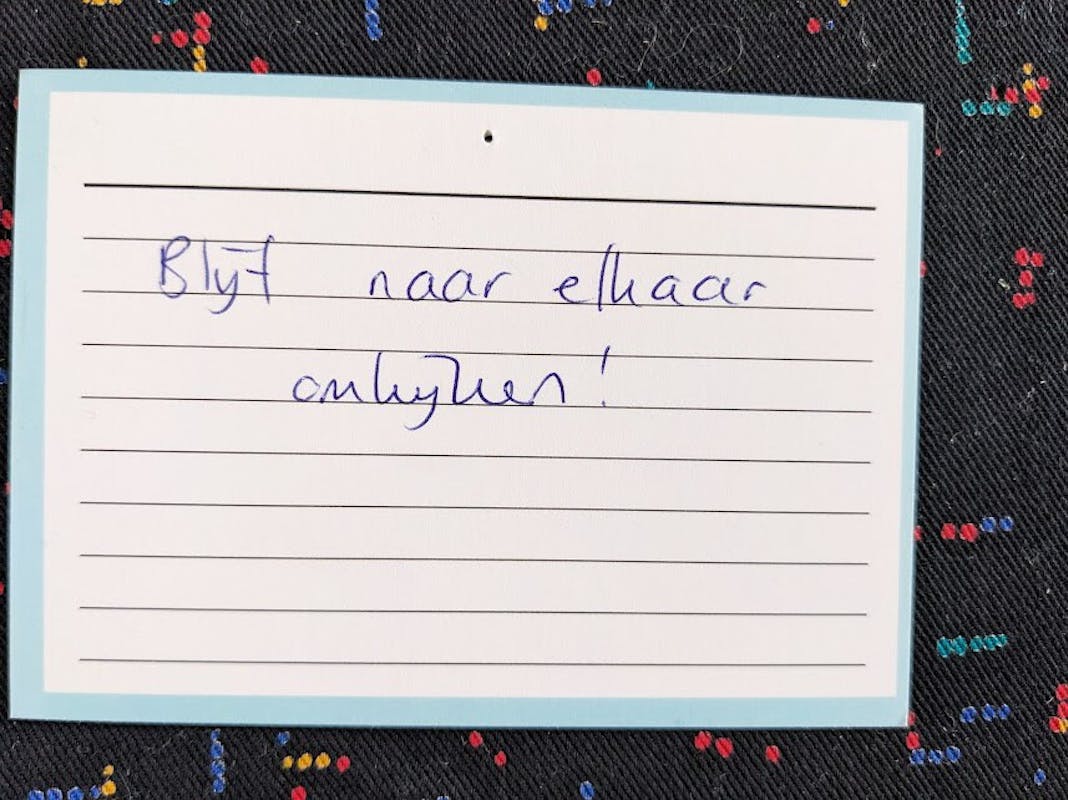 Blijf naar elkaar
omkijken!